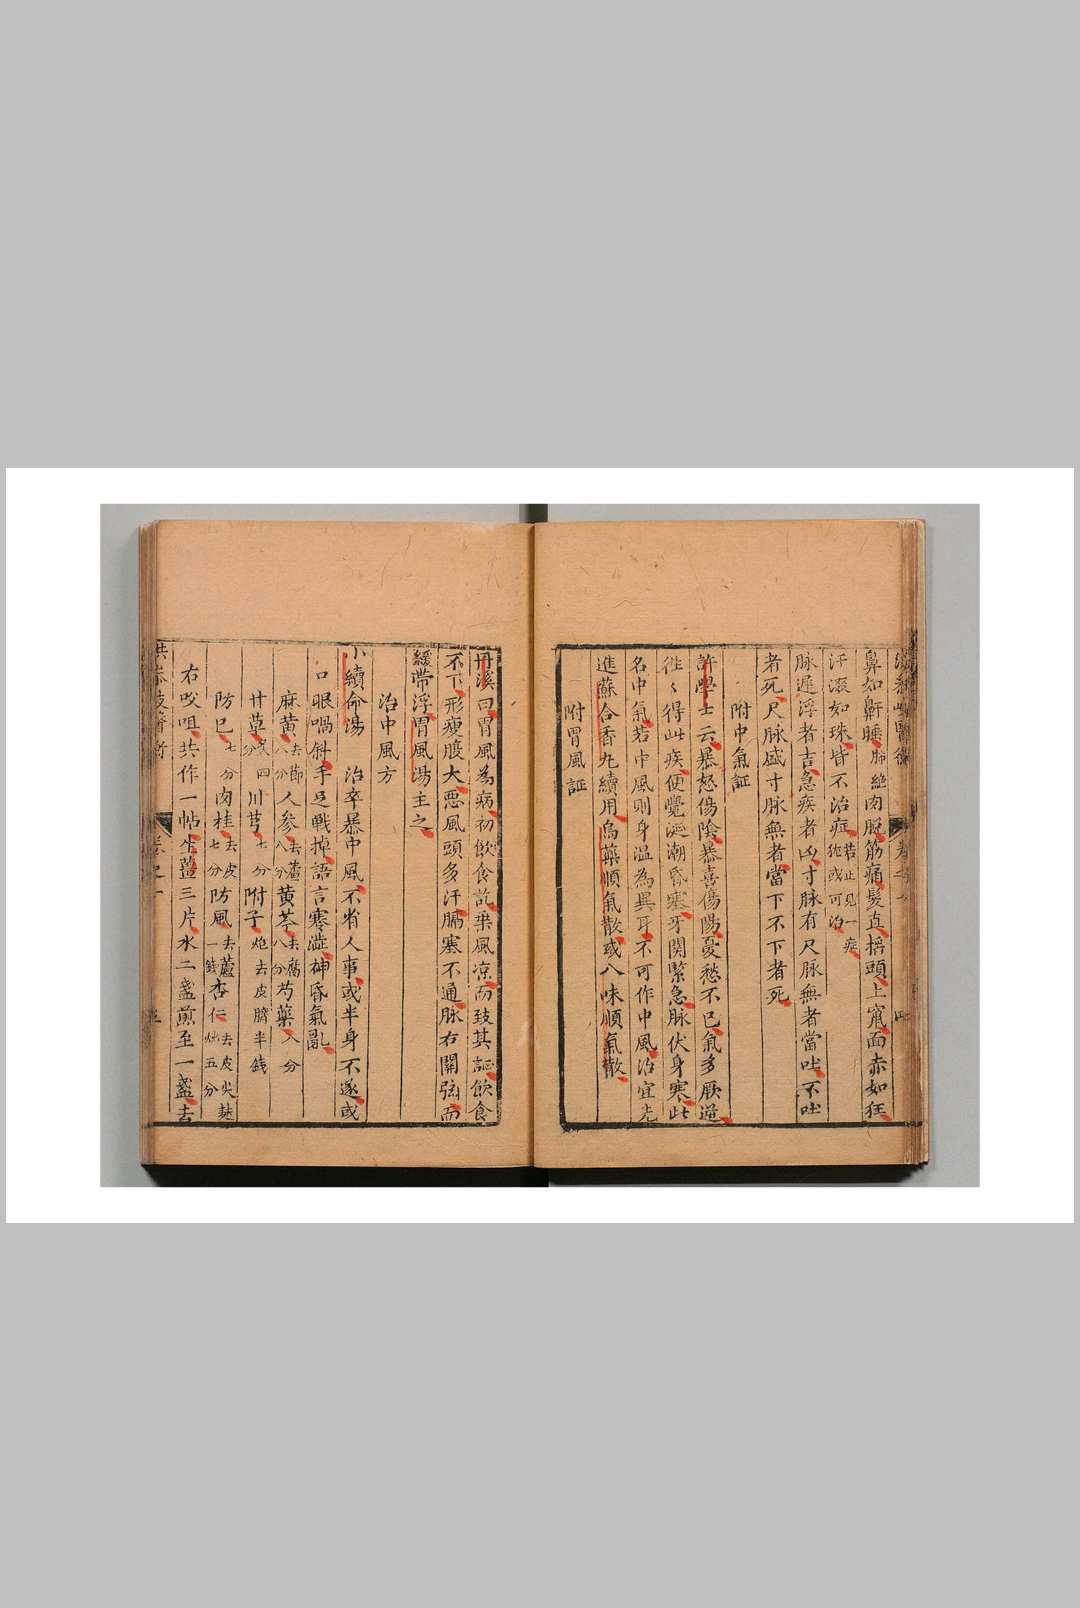 鼻如鼾睡肺絕肉脫筋痛髮直搖頭上竄面赤如狂
汗濈如珠皆不治症若止見一症猶或可治
脉遲浮者吉急疾者凶寸脉有尺脉無者當吐不吐
者死尺脉盛寸脉無者當下不下者死
附中氣証
許學士云暴怒傷陰暴喜傷陽憂愁不已氣多厥逆
徃〻得此疾便覺涎潮昏塞牙関緊急脉伏身寒此
名中氣若中風則身溫為異耳不可作中風治宜先
進蘇合香丸續用烏藥順氣散或八味順氣散
附胃風証
丹溪曰胃風為病初飲食訖乗風凉而致其証飲食
不下形瘦腹大惡風頭多汗膈塞不通脉右關弦而
緩帶浮胃風湯主之
治中風方
小續命湯 治卒暴中風不省人事或半身不遂或
口眼喎斜手足戰掉語言蹇澁神昏氣亂
麻黄去節八分人參去蘆八分黄芩去腐八分芍藥八分
甘草炙四分川芎七分附子炮去皮臍半錢
防巳七分肉桂去皮七分防風去蘆一錢杏仁去皮尖麩炒五分
右㕮咀共作一帖生薑三片水二盞煎至一盞去